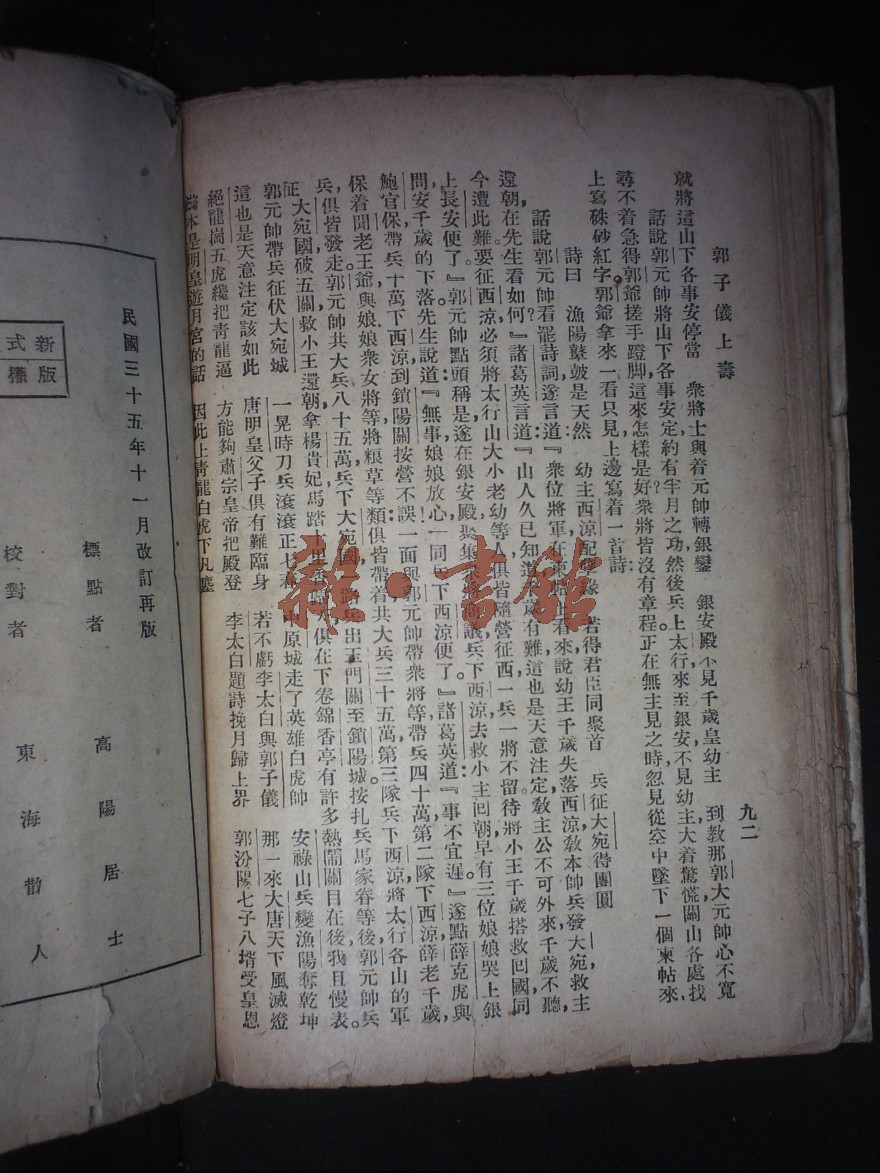 郭子儀上壽
九二
就將這山下各事安停當　衆將士與着元帥轉銀鑾　銀安殿不見千歲皇幼主　到教那郭大元帥心不寬
話說郭元帥將山下各事安定約有半月之功然後兵上太行來至銀安不見幼主大着驚慌關山各處找
尋不着急得郭爺搓手蹬脚這來怎樣是好衆將皆沒有章程正在無主見之時忽見從空中墜下一個柬帖來
上寫硃砂紅字郭爺拿來一看只見上邊寫着一首詩：
詩曰　漁陽鼙皷是天然　幼主西涼配　若得君臣同聚首　兵征大宛得團圓
話說郭元帥看罷詩詞遂言道：『衆位將軍在東帖上看來說幼王千歲失落西涼敎本帥兵發大宛救主
還朝在先生看如何』？諸葛英言道：『山人久已知道千歲有難這也是天意注定，敎主公不可外來千歲不聽，
今遭此難要征西涼必須將太行山大小老幼等人俱皆隨營征西一兵一將不留待將小王千歲搭救回國同
上長安便了』。郭元帥點頭稱是遂在銀安殿聚集衆將商議兵下西涼去救小主囘朝早有三位娘娘哭上銀
問安千歲的下落先生說道：『無事娘娘放心一同與下西涼便了』。諸葛英道：『事不宜遲』。遂點薛克虎與
鮑官保帶兵十萬下西涼到鎖陽關按營不誤一面與郭元帥帶衆將等帶兵四十萬第二隊下西涼薛老千歲，
保着聞老王爺與娘娘衆女將等將粮草等類俱皆帶着共大兵三十五萬第三隊兵下西涼將太行各山的軍
兵，俱皆發走郭元帥共大兵八十五萬兵下大宛國一路兵出玉門關至鎖陽城按扎兵馬家眷等後郭元帥兵
征大宛國破五關救小王還朝拿楊貴妃馬踏　俱在下卷錦香亭有許多熱鬧關目在後我且慢表。
郭元帥帶兵征伏大宛城　一晃時刀兵滾滾正七春　中原城走了英雄白虎帥　安祿山兵變漁陽奪乾坤
這也是天意注定該如此　唐明皇父子俱有難臨身　若不虧李太白與郭子儀　那一來大唐天下風滅燈
絕龍崗五虎纔把靑龍逼　方能夠肅宗皇帝把殿登　李太白題詩挽月歸上界　郭汾陽七子八壻受皇恩
本是明皇遊月宮的話　因此上靑龍白虎下凡塵
民國三十五年十一月改訂再版
新
式
版
標
標點者　高陽居士
校對者　東海散人
雜·書館